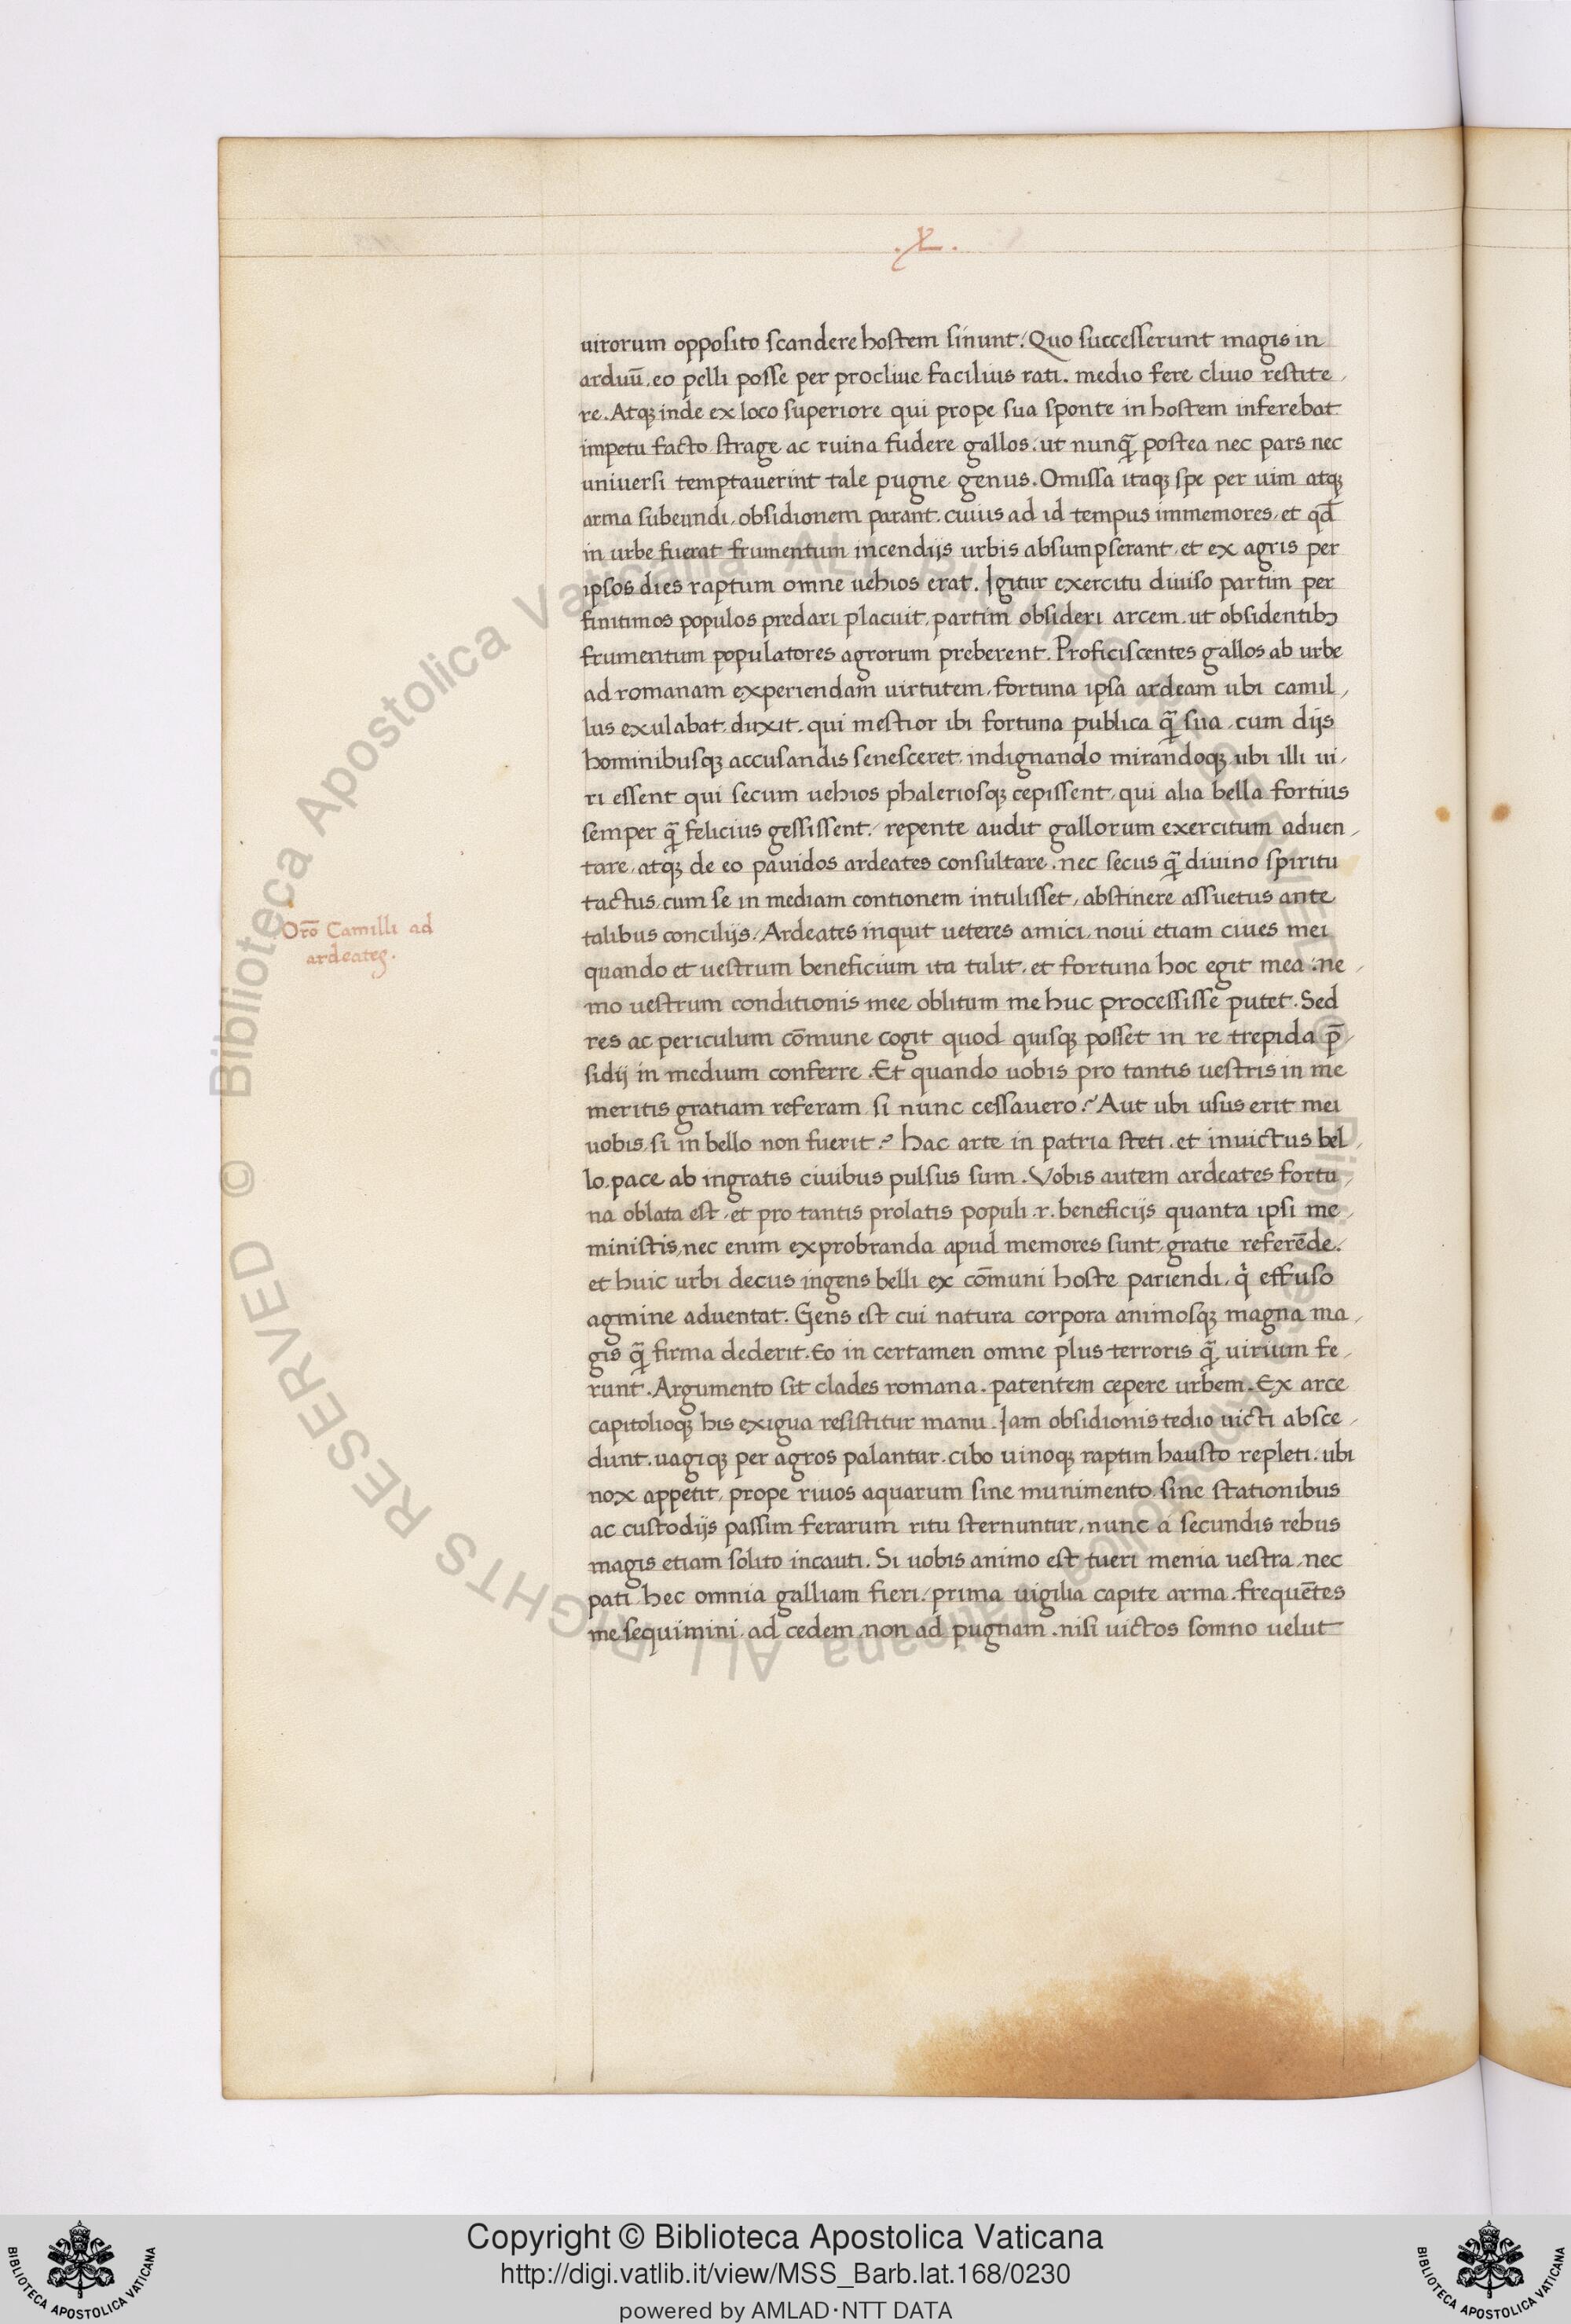 .X.
uirorum opposito scandere hostem sinunt. Quo successerunt magis in
arduū. eo pelli posse per procliue facilius rati. medio fere cliuo restite
re. Atqꝫ inde ex loco superiore qui prope sua sponte in hostem inferebat
impetu facto strage ac ruina fudere gallos. ut nunq̄ postea nec pars nec
uniuersi temptauerint tale pugne genus. Omissa itaqꝫ spe per uim atqꝫ
arma subeundi, obsidionem parant. cuius ad id tempus immemores, et qd̄
in urbe fuerat frumentum incendijs urbis absumpserant, et ex agris per
ipsos dies raptum omne uehios erat. Igitur exercitu diuiso partim per
finitimos populos predari placuit, partim obsideri arcem. ut obsidentibꝫ
frumentum populatores agrorum preberent. Proficiscentes gallos ab urbe
ad romanam experiendam uirtutem, fortuna ipsa ardeam ubi camil
lus exulabat, duxit. qui mestior ibi fortuna publica q̄ sua, cum dijs
hominibusqꝫ accusandis senesceret, indignando mirandoqꝫ ubi illi ui
ri essent qui secum uehios phaleriosqꝫ cepissent, qui alia bella fortius
semper q̄ felicius gessissent, repente audit gallorum exercitum aduen
tare, atqꝫ de eo pauidos ardeates consultare. nec secus q̄ diuino spiritu
tactus, cum se in mediam contionem intulisset, abstinere assuetus ante
Or̄o Camilli ad
ardeates.
talibus concilijs. Ardeates inquit ueteres amici, noui etiam ciues mei
quando et uestrum beneficium ita tulit, et fortuna hoc egit mea: ne
mo uestrum conditionis mee oblitum me huc processisse putet. Sed
res ac periculum cōmune cogit quod quisqꝫ posset in re trepida p̄
sidij in medium conferre. Et quando uobis pro tantis uestris in me
meritis gratiam referam si nunc cessauero? Aut ubi usus erit mei
uobis, si in bello non fuerit? hac arte in patria steti. et inuictus bel
lo, pace ab ingratis ciuibus pulsus sum. Vobis autem ardeates fortu
na oblata est, et pro tantis prolatis populi .r. beneficijs quanta ipsi me
ministis, nec enim exprobranda apud memores sunt, gratie referēde.
et huic urbi decus ingens belli ex cōmuni hoste pariendi, q̇ effuso
agmine aduentat. Gens est cui natura corpora animosqꝫ magna ma
gis q̄ firma dederit. Eo in certamen omne plus terroris q̄ uirium fe
runt. Argumento sit clades romana. patentem cepere urbem. Ex arce
capitolioqꝫ his exigua resistitur manu. Iam obsidionis tedio uicti absce
dunt. uagiqꝫ per agros palantur. cibo uinoqꝫ raptim hausto repleti. ubi
nox appetit, prope riuos aquarum sine munimento, sine stationibus
ac custodijs passim ferarum ritu sternuntur, nunc a secundis rebus
magis etiam solito incauti. Si uobis animo est tueri menia uestra, nec
pati hec omnia galliam fieri, prima uigilia capite arma. frequētes
me sequimini, ad cedem, non ad pugnam. nisi uictos somno uelut
© Biblioteca Apostolica Vaticana ALL RIGHTS RESERVED
© Biblioteca Apostolica Vaticana ALL RIGHTS RESERVED
Copyright © Biblioteca Apostolica Vaticana
http://digi.vatlib.it/view/MSS_Barb.lat.168/0230
powered by AMLAD·NTT DATA
BIBLIOTECA APOSTOLICA VATICANA
BIBLIOTECA APOSTOLICA VATICANA